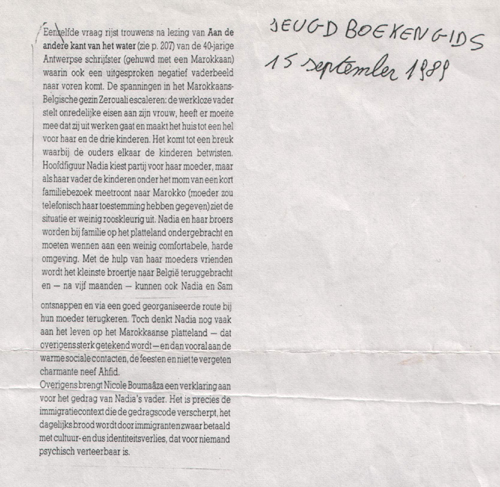 JEUGDBOEKENGIDS
15 september 1989
Eenzelfde vraag rijst trouwens na lezing van Aan de
andere kant van het water (zie p. 207) van de 40-jarige
Antwerpse schrijfster (gehuwd met een Marokkaan)
waarin ook een uitgesproken negatief vaderbeeld
naar voren komt. De spanningen in het Marokkaans-
Belgische gezin Zerouali escaleren: de werkloze vader
stelt onredelijke eisen aan zijn vrouw, heeft er moeite
mee dat zij uit werken gaat en maakt het huis tot een hel
voor haar en de drie kinderen. Het komt tot een breuk
waarbij de ouders elkaar de kinderen betwisten.
Hoofdfiguur Nadia kiest partij voor haar moeder, maar
als haar vader de kinderen onder het mom van een kort
familiebezoek meetroont naar Marokko (moeder zou
telefonisch haar toestemming hebben gegeven) ziet de
situatie er weinig rooskleurig uit. Nadia en haar broers
worden bij familie op het platteland ondergebracht en
moeten wennen aan een weinig comfortabele, harde
omgeving. Met de hulp van haar moeders vrienden
wordt het kleinste broertje naar België teruggebracht
en — na vijf maanden — kunnen ook Nadia en Sam
ontsnappen en via een goed georganiseerde route bij
hun moeder terugkeren. Toch denkt Nadia nog vaak
aan het leven op het Marokkaanse platteland — dat
overigens sterk getekend wordt — en dan vooral aan de
warme sociale contacten, de feesten en niet te vergeten
charmante neef Ahfid.
Overigens brengt Nicole Boumaâza een verklaring aan
voor het gedrag van Nadia's vader. Het is precies de
immigratiecontext die de gedragscode verscherpt, het
dagelijks brood wordt door immigranten zwaar betaald
met cultuur- en dus identiteitsverlies, dat voor niemand
psychisch verteerbaar is.